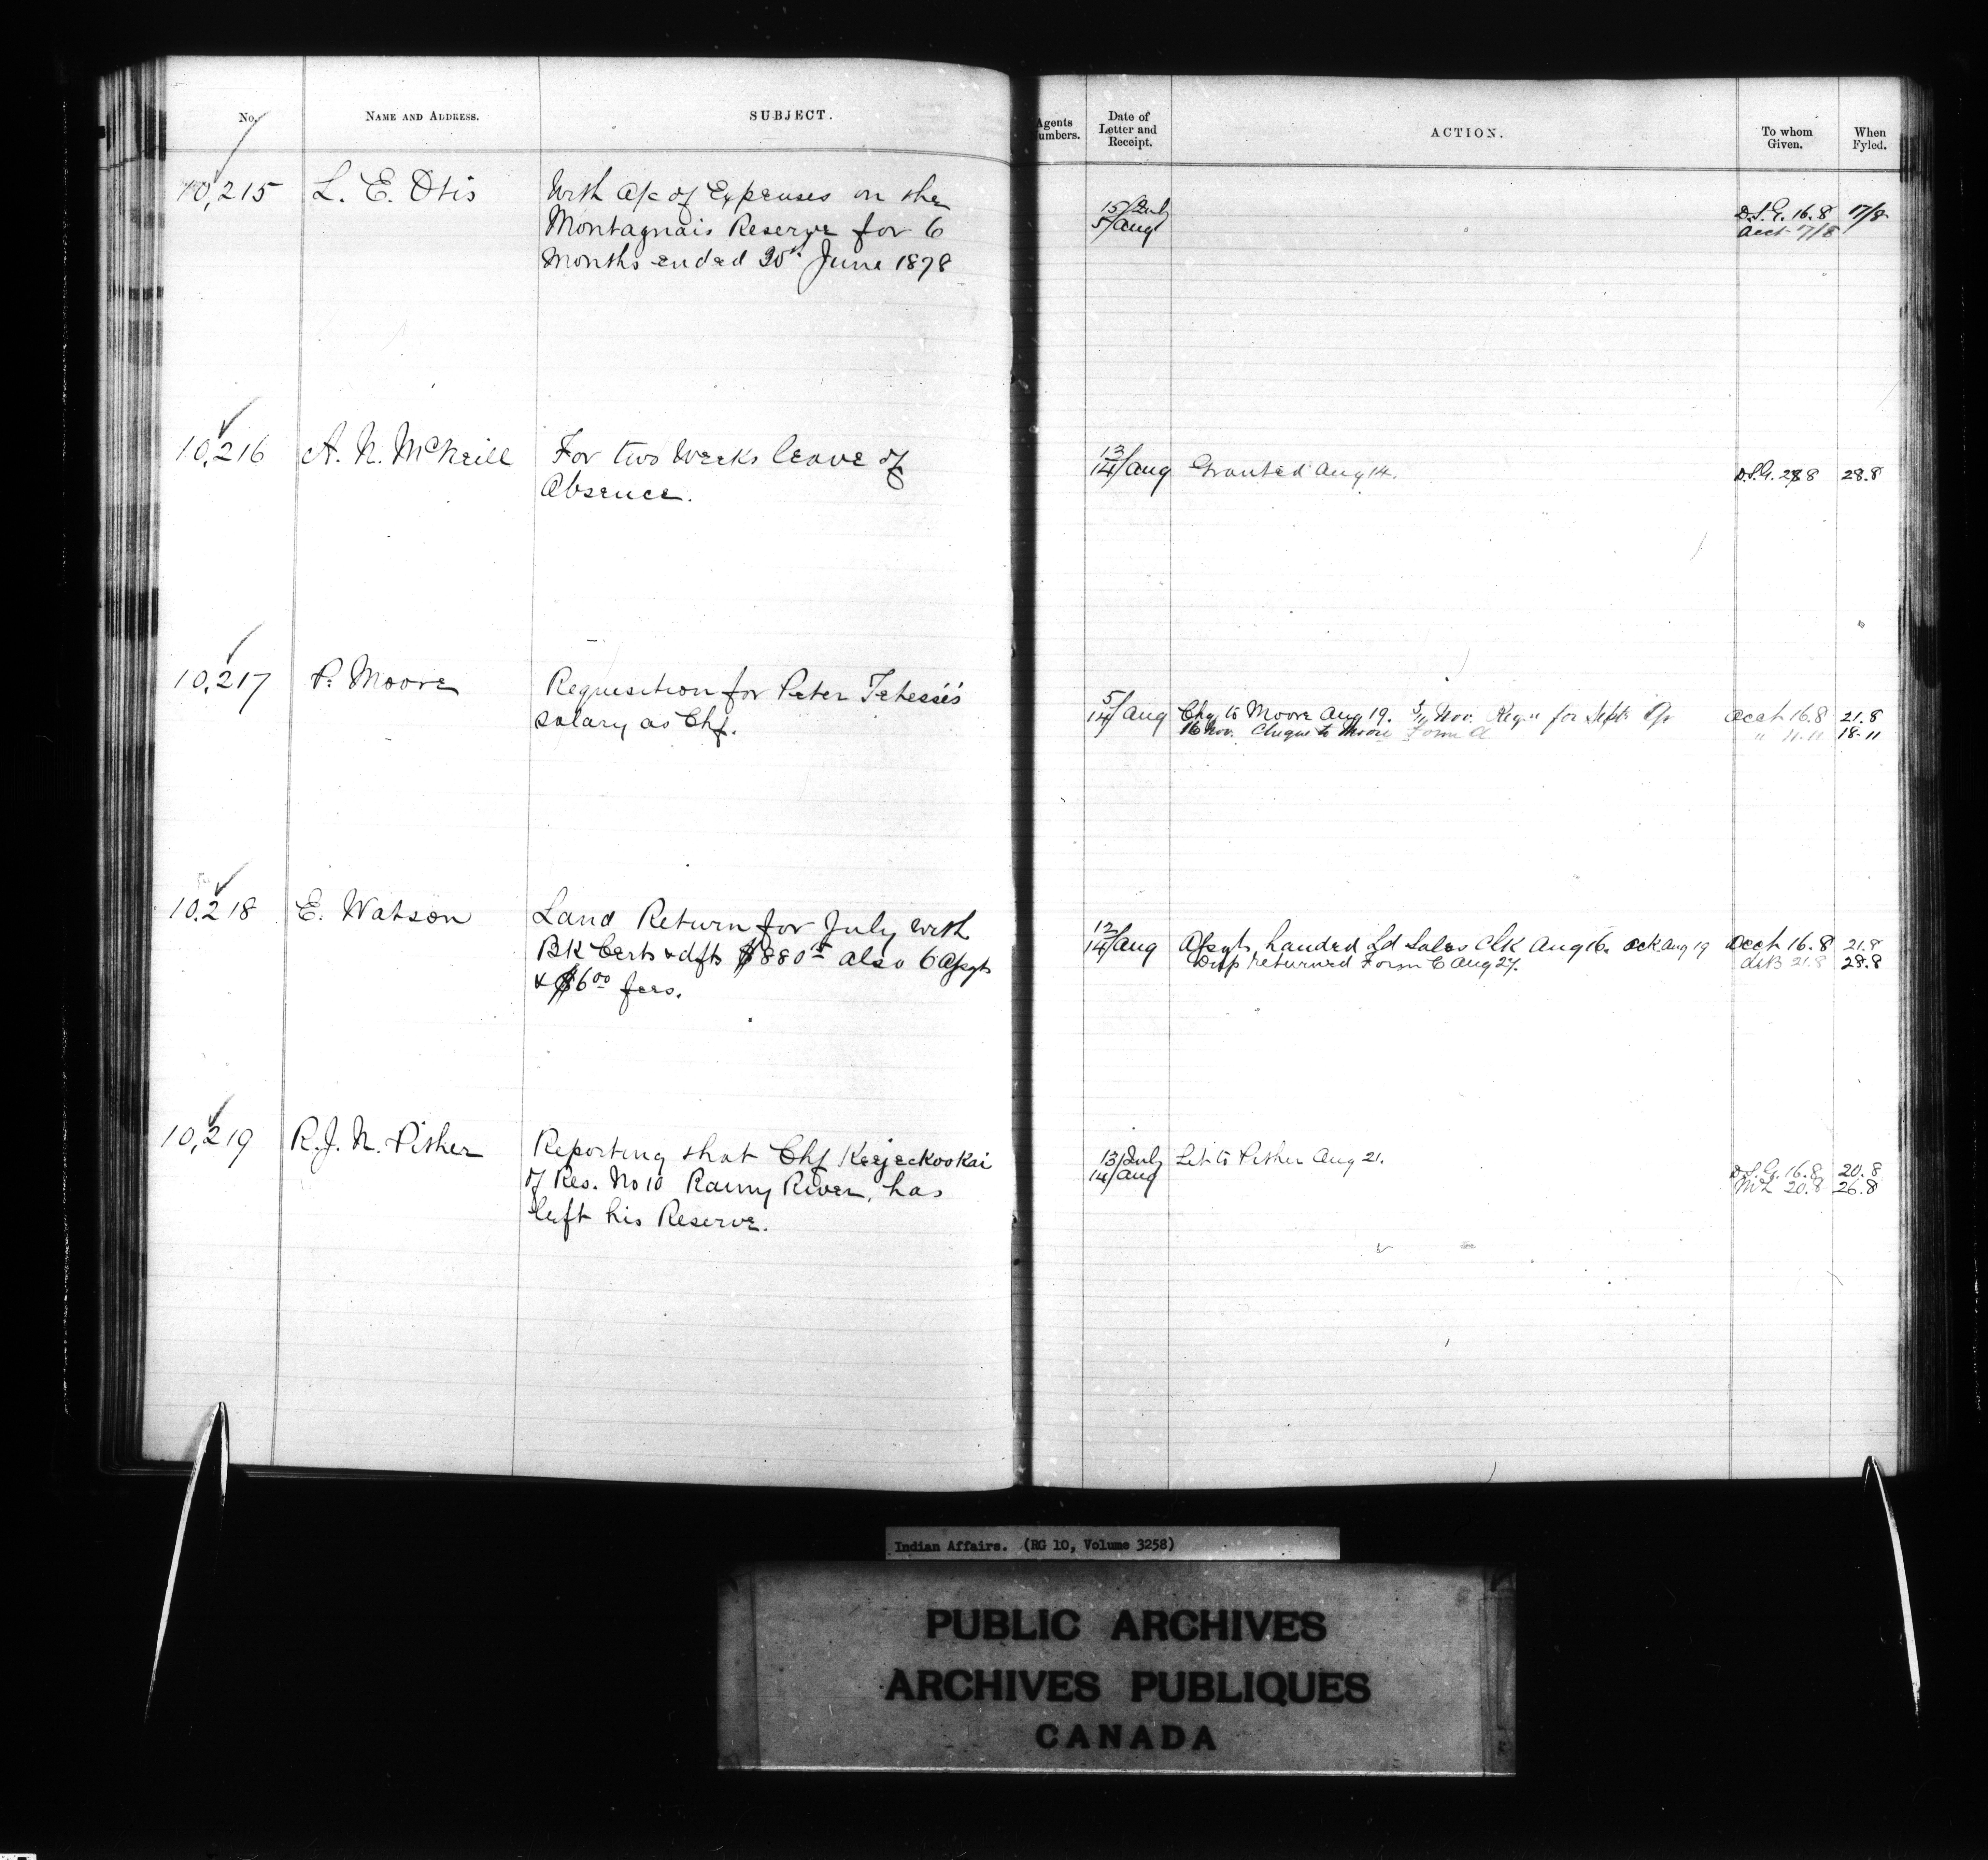 No.
NAME AND ADDRESS.
SUBJECT.
Agents Numbers.
Date of Letter and Receipt.
ACTION.
To whom Given.
When Fyled.
10,215 L. E. Otis
With a/c of Expenses on the
Montagnais Reserve for 6
Months ended 30th June 1878
15/July
5/Aug
D.S.G. 16.8 17/8
Acct 17/8
10,216 A. N. McNeill
For two Weeks leave of
Absence.
13
14/Aug Granted Aug 14.
D.S.G. 28 8 28.8
10,217 P. Moore
Requisition for Peter salary as Chf.
5/
14/Aug Chq to Moore Aug 19. Nov. Reqn for Sept
16 Nov. Cheque to Moore Form A
Acct 16.8 21.8
" 11.11 18.11
10,218 E. Watson
Land Return for July with
BK Certs & dfts $880 also 6 Assgts
& $6.00 fees.
12
14/Aug Assgts handed Ld Sales Clk Aug 16. ack Aug 19
returned Form C Aug 27.
Acct 16.8 21.8
21.8 28.8
10,219 R. J. N. Pither
Reporting that Chf Keejeekookai
of Res. No 10 Rainy River, has
left his Reserve.
13/July
14/Aug
Let to Pither Aug 21.
D.S.G. 16.8 20.8
ML 20.8 26.8
Indian Affairs. (RG 10, Volume 3258)
PUBLIC ARCHIVES
ARCHIVES PUBLIQUES
CANADA